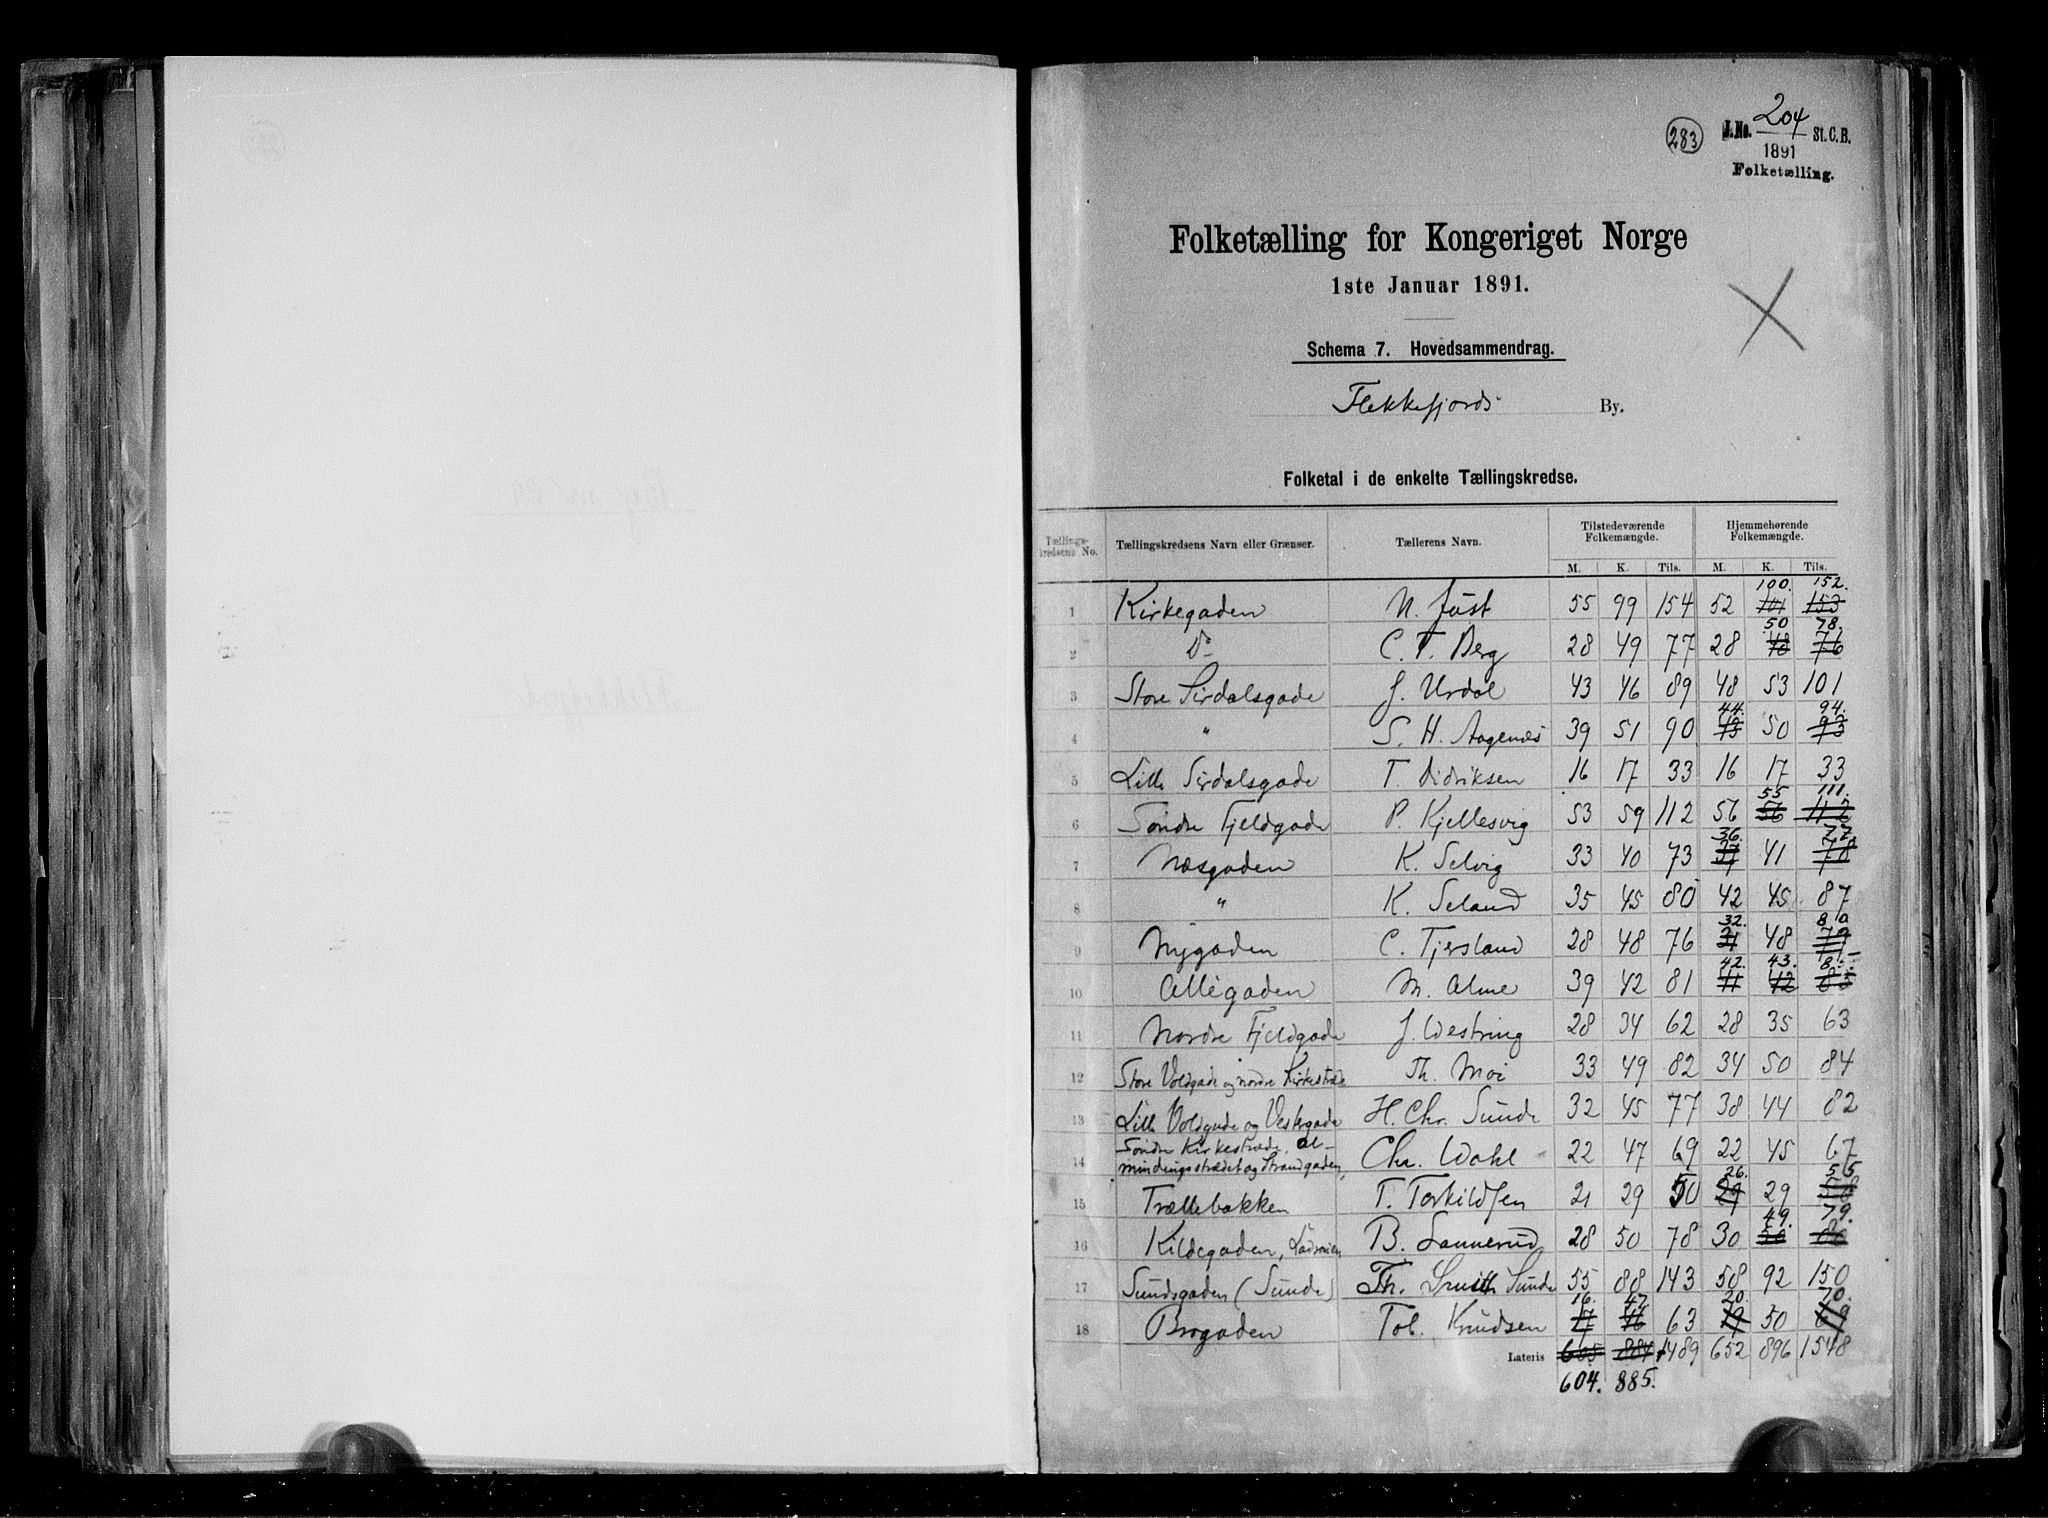 283
J. No. 204 St. C. B.
1891
Folketælling.
Folketælling for Kongeriget Norge
1ste Januar 1891.
Schema 7. Hovedsammendrag.
Flekkefjords By.
Folketal i de enkelte Tællingskredse.
Tællings-kredsens No. Tællingskredsens Navn eller Grænser. Tællerens Navn. Tilstedeværende Folkemængde. Hjemmehørende Folkemængde.
M. K. Tils. M. K. Tils.
100. 152.
1 Kirkegaden N. Just 55 99 154 52 101 153
50 78.
2 Do C. T. Berg 28 49 77 28 48 76
3 Store Sirdalsgade J. Urdal 43 46 89 48 53 101
44. 94.
4 " S. H. Aagenæs 39 51 90 43 50 93
5 Lille Sirdalsgade T. Didriksen 16 17 33 16 17 33
55 111.
6 Søndre Fjeldgade P. Kjellesvig 53 59 112 56 56 112
36. 77.
7 Næsgaden K. Selvig 33 40 73 37 41 78
8 " K. Seland 35 45 80 42 45 87
32. 80
9 Nygaden C. Tjersland 28 48 76 31 48 79
42. 43. 85
10 Allégaden M. Alme 39 42 81 41 42 83
11 Nordre Fjeldgade J. Westring 28 34 62 28 35 63
12 Store Voldgade og nordre Kirkestræde Th. Moi 33 49 82 34 50 84
13 Lille Voldgade og Vestergade H. Chr. Sunde 32 45 77 38 44 82
14 Søndre Kirkestræde, Al-
mindingsstrædet og Strandgaden, Chr. Wahl 22 47 69 22 45 67
26. 55
15 Trællebakken T. Torkildsen 21 29 50 29 29 58
49. 79.
16 Kildegaden, B. Sannerud 28 50 78 30 50 80
17 Sundsgaden (Sunde) Th. Smith Sunde 55 88 143 58 92 150
16. 47. 20. 70.
18 Brogaden Tob. Knudsen 17 46 63 19 50 69
Lateris 605 884 1489 652 896 1548
604. 885.